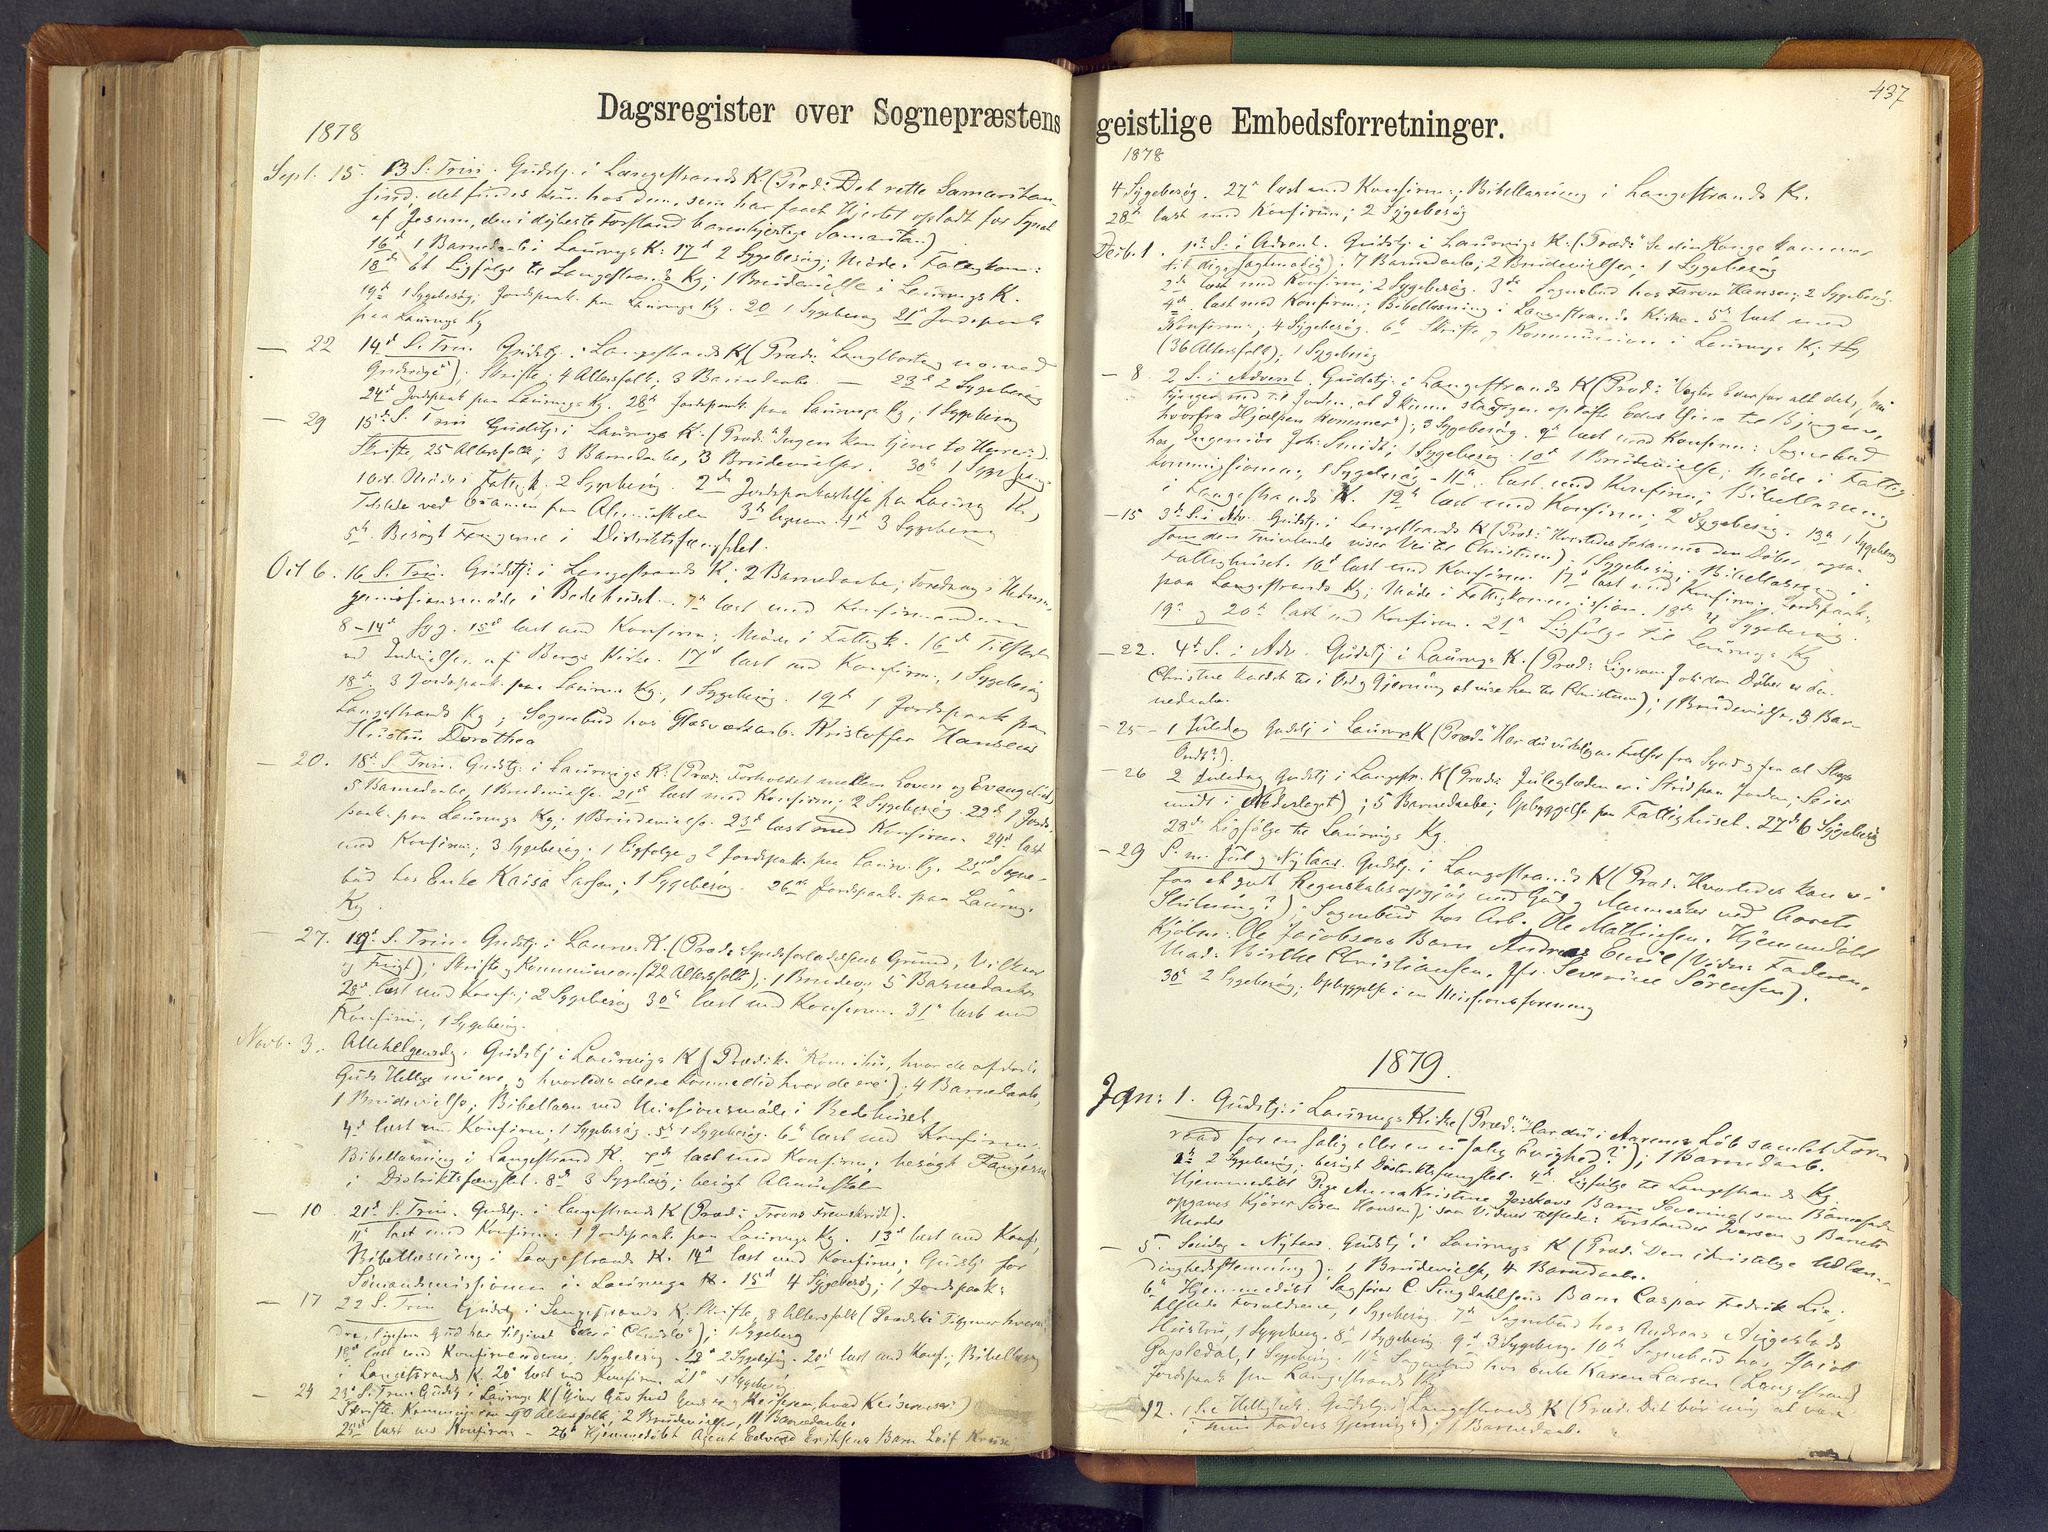 Dagsregister over Sognepræstens
1878
Sept. 15. 13 S. Trin. Gudstj. i Langestrands K. (Præd: Det rette Samaritan
sind. det findes kun hos dem, som har faaet Hjertet opladt for Synet
af Jesum, den i dybeste Forstand barmhjertige Samaritan)
16d 1 Barnedaab i Laurvigs K. 17d 2 Sygebesøg; Møde i Fattigkom:
18d Ligfølge til Langestrands Kg; 1 Brudevielse i Laurvigs K.
19d 1 Sygebesøg; Jordspaak. paa Laurvigs Kg. 20 1 Sygebesøg 21d Jordspaak
paa Laurvigs Kg
— 22 14d S. Trin. Gudstj. i Langestrands K (Præd:
); Skrifte. 4 Altersfolk; 3 Barnedaabe. — 23d 2 Sygebesøg
24d Jordspaak paa Laurvigs Kg. 28d Jordspaak. paa Laurvigs Kg; 1 Sygebesøg
— 29 15d S. Trin Gudstj. i Laurvigs K. (Præd. "Ingen kan tjene to Herrer").
Skrifte, 25 Altersfolk; 3 Barnedaabe, 3 Brudevielser. 30d 1 Sygebesøg
1 Oct. Møde i Fattigk. 2 Sygebesøg. 2d Jordspaakastelse paa Laurvig K.,
Tilstede ved Examen paa Almueskolen 3d ligesaa. 4d 3 Sygebesøg
5d. Besøgt Fangerne i Distriktsfængslet.
Oct 6. 16 S. Trin. Gudstj. i Langestrands K; 2 Barnedaabe; Foredrag i
missionsmøde i Bedehuset. 7d læst med Konfirmanderne
8–14d syg. 15d læst med Konfirm; Møde i Fattigk. 16d Tilstede
ved Indvielsen af Bergs Kirke. 17d læst med Konfirm., 1 Sygebesøg
18d. 3 Jordspaak. paa Laurv. Kg., 1 Sygebesøg. 19d 1 Jordspaak paa
Langestrands Kg; Sognebud hos Glasværksarb. Kristoffer Hansens
Hustru Dorothea
— 20. 18d S. Trin. Gudstj. i Laurvigs K. (Præd. Forholdet mellem Loven og Evangeliet)
5 Barnedaabe, 1 Brudevielse. 21d læst med Konfirm; 2 Sygebesøg. 22d 1 Jords
paak. paa Laurvigs Kg; 1 Brudevielse. 23d læst med Konfirm. 24d læst
med Konfirm; 3 Sygebesøg. 1 Ligfølge og 2 Jordspaak. paa Laurv. Kg. 25d Sogne-
bud hos Enke Kaisa Larsen; 1 Sygebesøg. 26d Jordspaak. paa Laurvigs
Kg.
— 27. 19d. S. Trin. Gudstj. i Laurv. K. (Præd: Syndsforladelsens Grund, Vilkaar
og Frugt); Skrifte og Kommunion (22 Altersfolk); 1 Brudev; 5 Barnedaabe
28d læst med Konf.; 2 Sygebesøg 30d læst med Konfirm. 31d læst med
Konfirm., 1 Sygebesøg.
Novb. 3. Allehelgensdag. Gudstj i Laurvigs K (Prædik. "Kom ihu, hvor de afdøde
Guds Hellige nu ere og hvorledes de ere kommne did hvor de ere"); 4 Barnedaabe,
1 Brudevielse; Bibellæsn ved Missionsmøde i Bedehuset
4d læst med Konfirm; 1 Sygebesøg. 5d 1 Sygebesøg. 6d læst med Konfirm.
Bibellæsning i Langestrand K. 7d læst med Konfirm; besøgt Fangerne
i Distriktsfængslet. 8d 3 Sygebesøg; besøgt Almueskolen
— 10. 21d S. Trin. Gudstj. i Langestrands K (Præd: Troens Fremskridt).
11d læst med Konfirm. 1 Jordspaak. paa Laurvigs Kg. 13d læst med Konf.
Bibellæsning i Langestrands K. 14d læst med Konfirm; Gudstj. for
Sømandsmissionen i Laurvigs K. 15d 4 Sygebesøg; 1 Jordspaak.
— 17 22 S. Trin Gudstj. i Langestrands K, Skrifte, 8 Altersfolk (Prædik: Tilgiver hveran-
dre, ligesom Gud har tilgivet Eder i Christo"); 1 Sygebesøg
18d læst med Konfirmanderne; 1 Sygebesøg. 19d 2 Sygebesøg. 20d læst med Konf.; Bibellæsning
i Langestrands K. 20d læst med Konfirm. 21d 1 Sygebesøg
— 24 23d S. Trin. Gudstj. i Laurvigs K ("Giver Gud hvad Guds er og Keiseren, hvad Keiserens er")
Skrifte. Kommunion 90 Altersfolk; 2 Brudevielser, 11 Barnedaabe.
25d læst med Konfirm – 26d Hjemmedøbt Agent Edvard Eriksens Barn Leif
geistlige Embedsforretninger.
437
1878
4 Sygebesøg. 27d læst med Konfirm.; Bibellæsning i Langestrands K.
28d læst med Konfirm; 2 Sygebesøg
Decb. 1. 1d S. i Advent. Gudstj. i Laurvigs K. (Præd: "Se din Konge kommer
til dig, sagtmodig) 7 Barnedaabe; 2 Brudevielser; 1 Sygebesøg
2d læst med Konfirm; 2 Sygebesøg. 3d Sognebud hos Hansen; 2 Sygebesøg.
4d læst med Konfirm.; Bibellæsning i Langestrands Kirke. 5d læst med
Konfirm.; 4 Sygebesøg. 6d Skrifte og Kommunion i Laurvigs K;
(36 Altersfolk); 1 Sygebesøg
— 8. 2 S. i Advent. Gudstj. i Langestrands K (Præd: "Vogter Eder for alt det, som
tynger ned til Jorden, at I kunne opløfte Eders Øine til Bjergene,
hvorfra Hjælpen kommer"); 3 Sygebesøg. 9d læst med Konfirm: Sognebud
hos Ingeniør Joh. Smidt; 1 Sygebesøg. 10d 1 Brudevielse; Møde i Fattig-
kommissionen; 1 Sygebesøg. 11d læst med Konfirm; Bibellæsning
i Langestrands K. 12d læst med Konfirm; 2 Sygebesøg. 13d 1 Sygebesøg
— 15 3d S. i Adv. Gudstj. i Langestrands K (Præd: "Hvorledes Johannes den Døber ogsaa
som den tvivlende viser Vei til Christum); 1 Sygebesøg; Bibellæsning i
Fattighuset. 16d læst med Konfirm. 17d læst med Konfirm. Jordspaak.
paa Langestrands Kg; Møde i Fattigkommission. 18d 4 Sygebesøg.
19d og 20d læst med Konfirm. 21d Ligfølge til Laurvigs Kg
— 22. 4d S. i Adv. Gudstj. i Laurvigs K. (Præd: Ligesom Joh. den Døber er den
Christne kaldet til i Ord og Gjerning at vise hen til Christum); 1 Brudevielse. 3 Bar-
nedaabe.
— 25 – 1 Juledag Gudstj. i Laurvigs K (Præd: "Har du virkelig en Frelser fra Synd og fra al Slags
Ondt?).
— 26 2 Juledag Gudstj. i Langestr. K (Præd: Juleglæden er i Strid paa Jorden; Seier
midt i Nederlaget); 5 Barnedaabe; Opbyggelse paa Fattighuset. 27d 6 Sygebesøg
28d Ligfølge til Laurvigs Kg.
— 29 S. m. Jul og Nytaar. Gudstj. i Langestrands K (Præd. Hvorledes kan vi
faa et godt Regnskabsopgjør med Gud og Mennesker ved Aarets
Slutning?); Sognebud hos Arb. Ole Mathiesen. Hjemmedøbt
Kjølm. Ole Jacobsens Barn Andreas Emil (Vidn: Faderen,
Mad. Birthe Christiansen, Jfr. Severine Sørensen).
30d 2 Sygebesøg; Opbyggelse i en Missionsforening
1879.
Jan: 1. Gudstj. i Laurvigs Kirke (Præd: "Har du i Aarenes Løb samlet Forr
raad for en salig eller en usalig Evighed?); 1 Barnedaab.
2d 2 Sygebesøg; besøgt Distriktsfængslet. 4d Ligfølge til Langestrands Kg.
Hjemmedøbt Pige Anna Kristine Barn Severine (som Barnefader
opgaves Kjører Søren Hansen); som Vidner tilstede: Forstander Iversen og Barnets
Moder
— 5. Søndag e. Nytaar. Gudstj. i Laurvigs K (Præd. Den christelige Udlæn-
dinghedsstemning). 1 Brudevielse, 4 Barnedaabe.
6d Hjemmedøbt Sagfører C. Singdahlsens Barn Caspar Fredrik
tilstede Forældrene, 1 Sygebesøg 7d Sognebud hos Andreas
Hustru, 1 Sygebesøg. 8d 1 Sygebesøg 9d 3 Sygebesøg. 10d Sognebud hos Jacob
Gapledal, 1 Sygebesøg. 11d Sognebud hos Enke Karen Larsen (Langestrand)
Jordspaak paa Langestrands Kg.
12. 1 S. e. Hellig 3 K. Gudstj. i Langestrands K (Præd. Det bør mig at være
i min Faders Gjerning"); 1 Barnedaab.